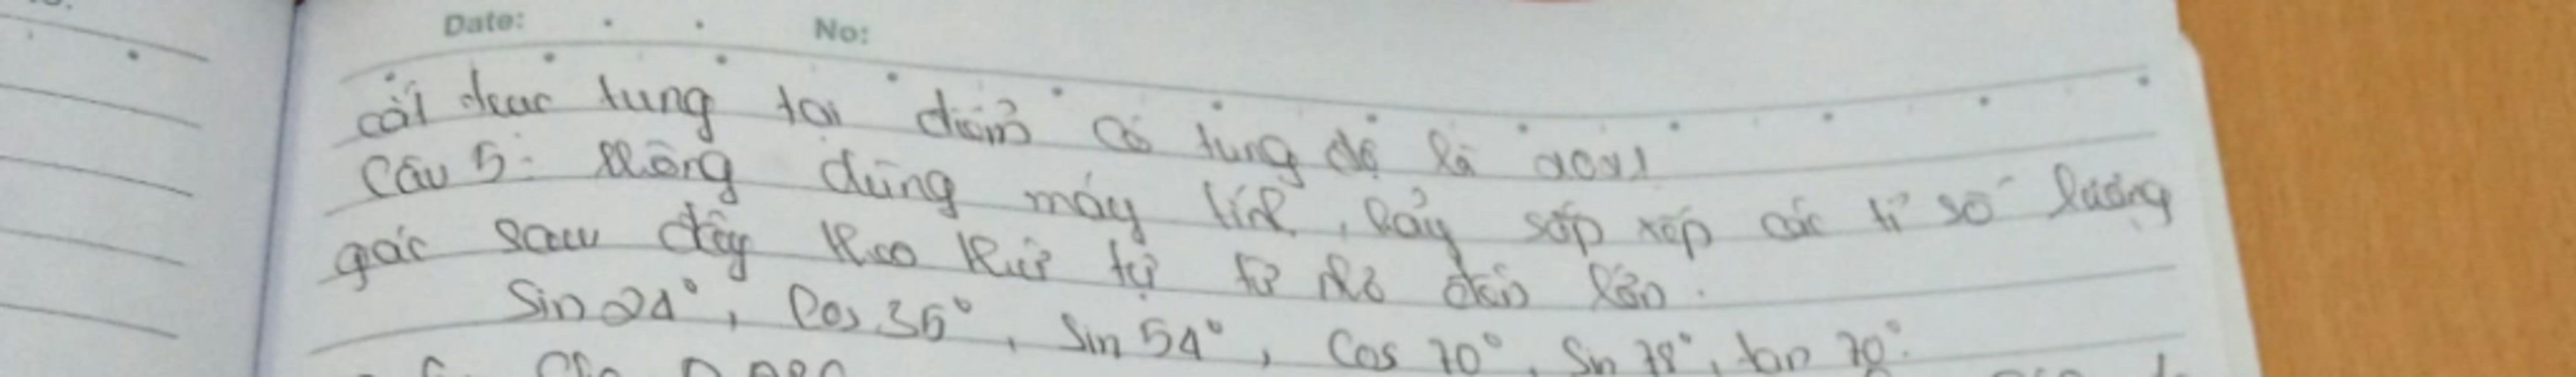 Date: No:
cắt trục tung tại điểm có tung độ là
Câu 5: Không dùng máy tính, hãy sắp xếp các tỉ số lượng
giác sau đây theo thứ tự từ nhỏ đến lớn.
Sin 24°, Cos 35°, Sin 54°, Cos 70°, Sin 78°, tan 70°.